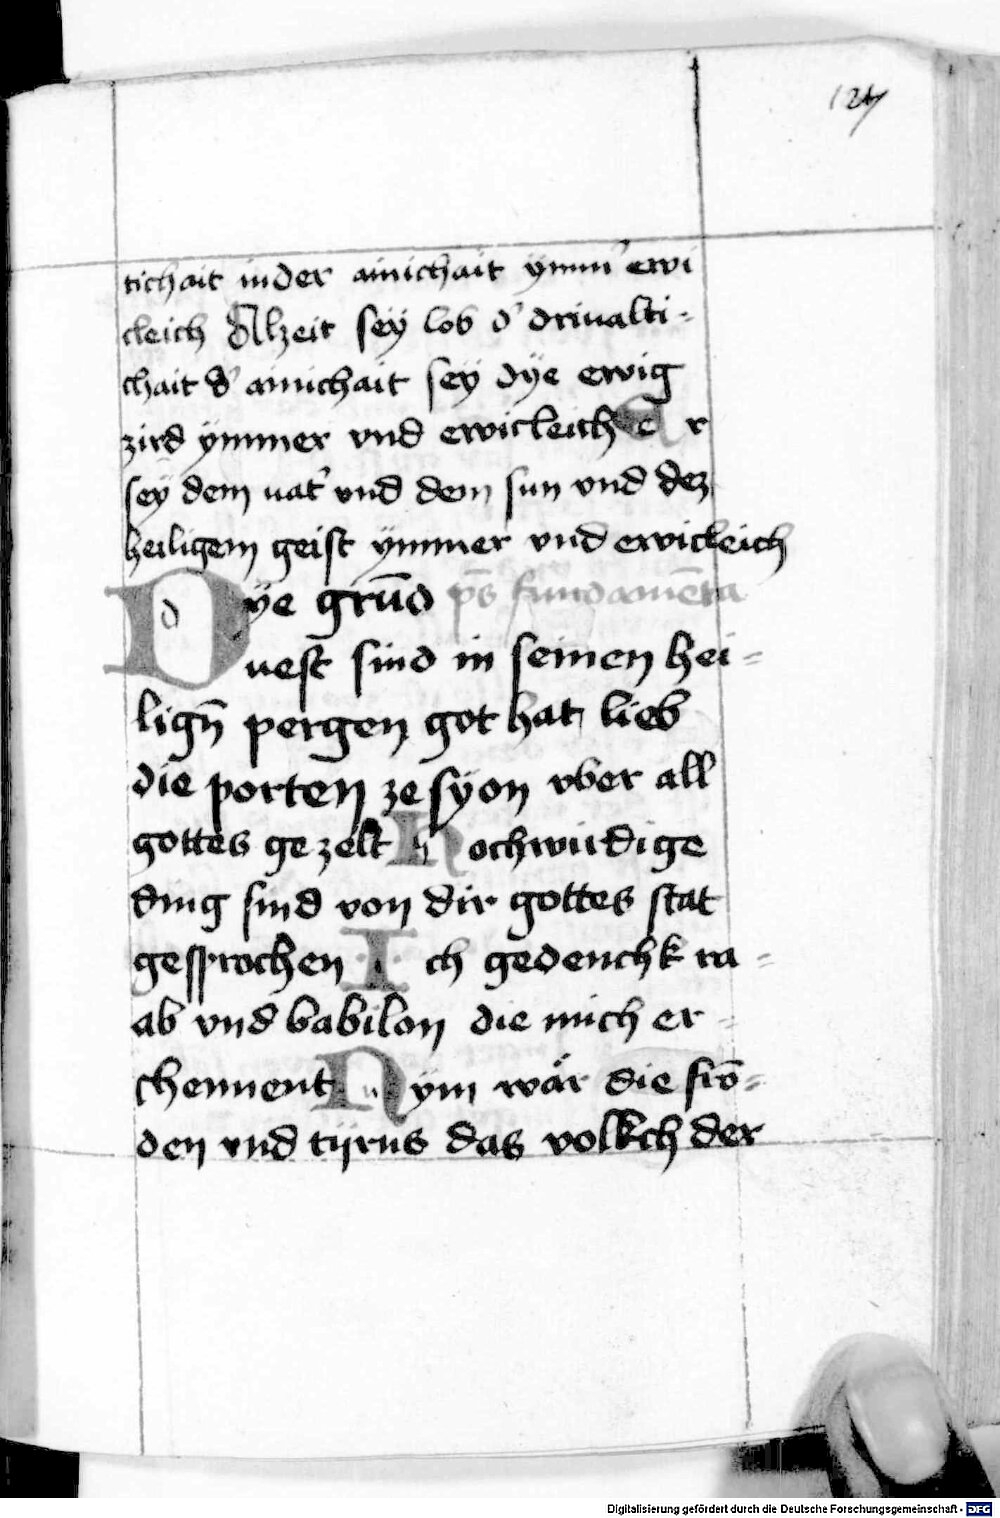 127
tichait in der ainichait ymm̄ ewi
cleich Alzeit sey lob d' driualti-
chait d' ainichait sey dye ewig
zird ymmer vnd ewicleich Er
sey dem uat' vnd dem sun vnd dez
heiligem geist ymmer vnd ewicleich
Dye grūd p̄s fundamēta
uest sind in seinen hei-
lign̄ pergen got hat lieb
die porten ze syon vber all
gottes gezelt Hochwirdige
ding sind von dir gottes stat
gesprochen Ich gedenchk ra-
ab vnd babilon die mich er-
chennent Nym wår die frō-
den vnd tyrus das volkch der
Digitalisierung gefördert durch die Deutsche Forschungsgemeinschaft - DFG